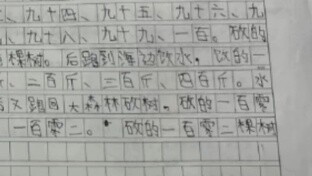 、九十四、九十五、九十六、九
、九十八、九十九、一百。砍的
棵树。后跑到海边饮水,饮的一
、二百斤、三百斤、四百斤。水
又跑回大森林砍树。砍的一百零
一百零二。砍的一百零二棵树